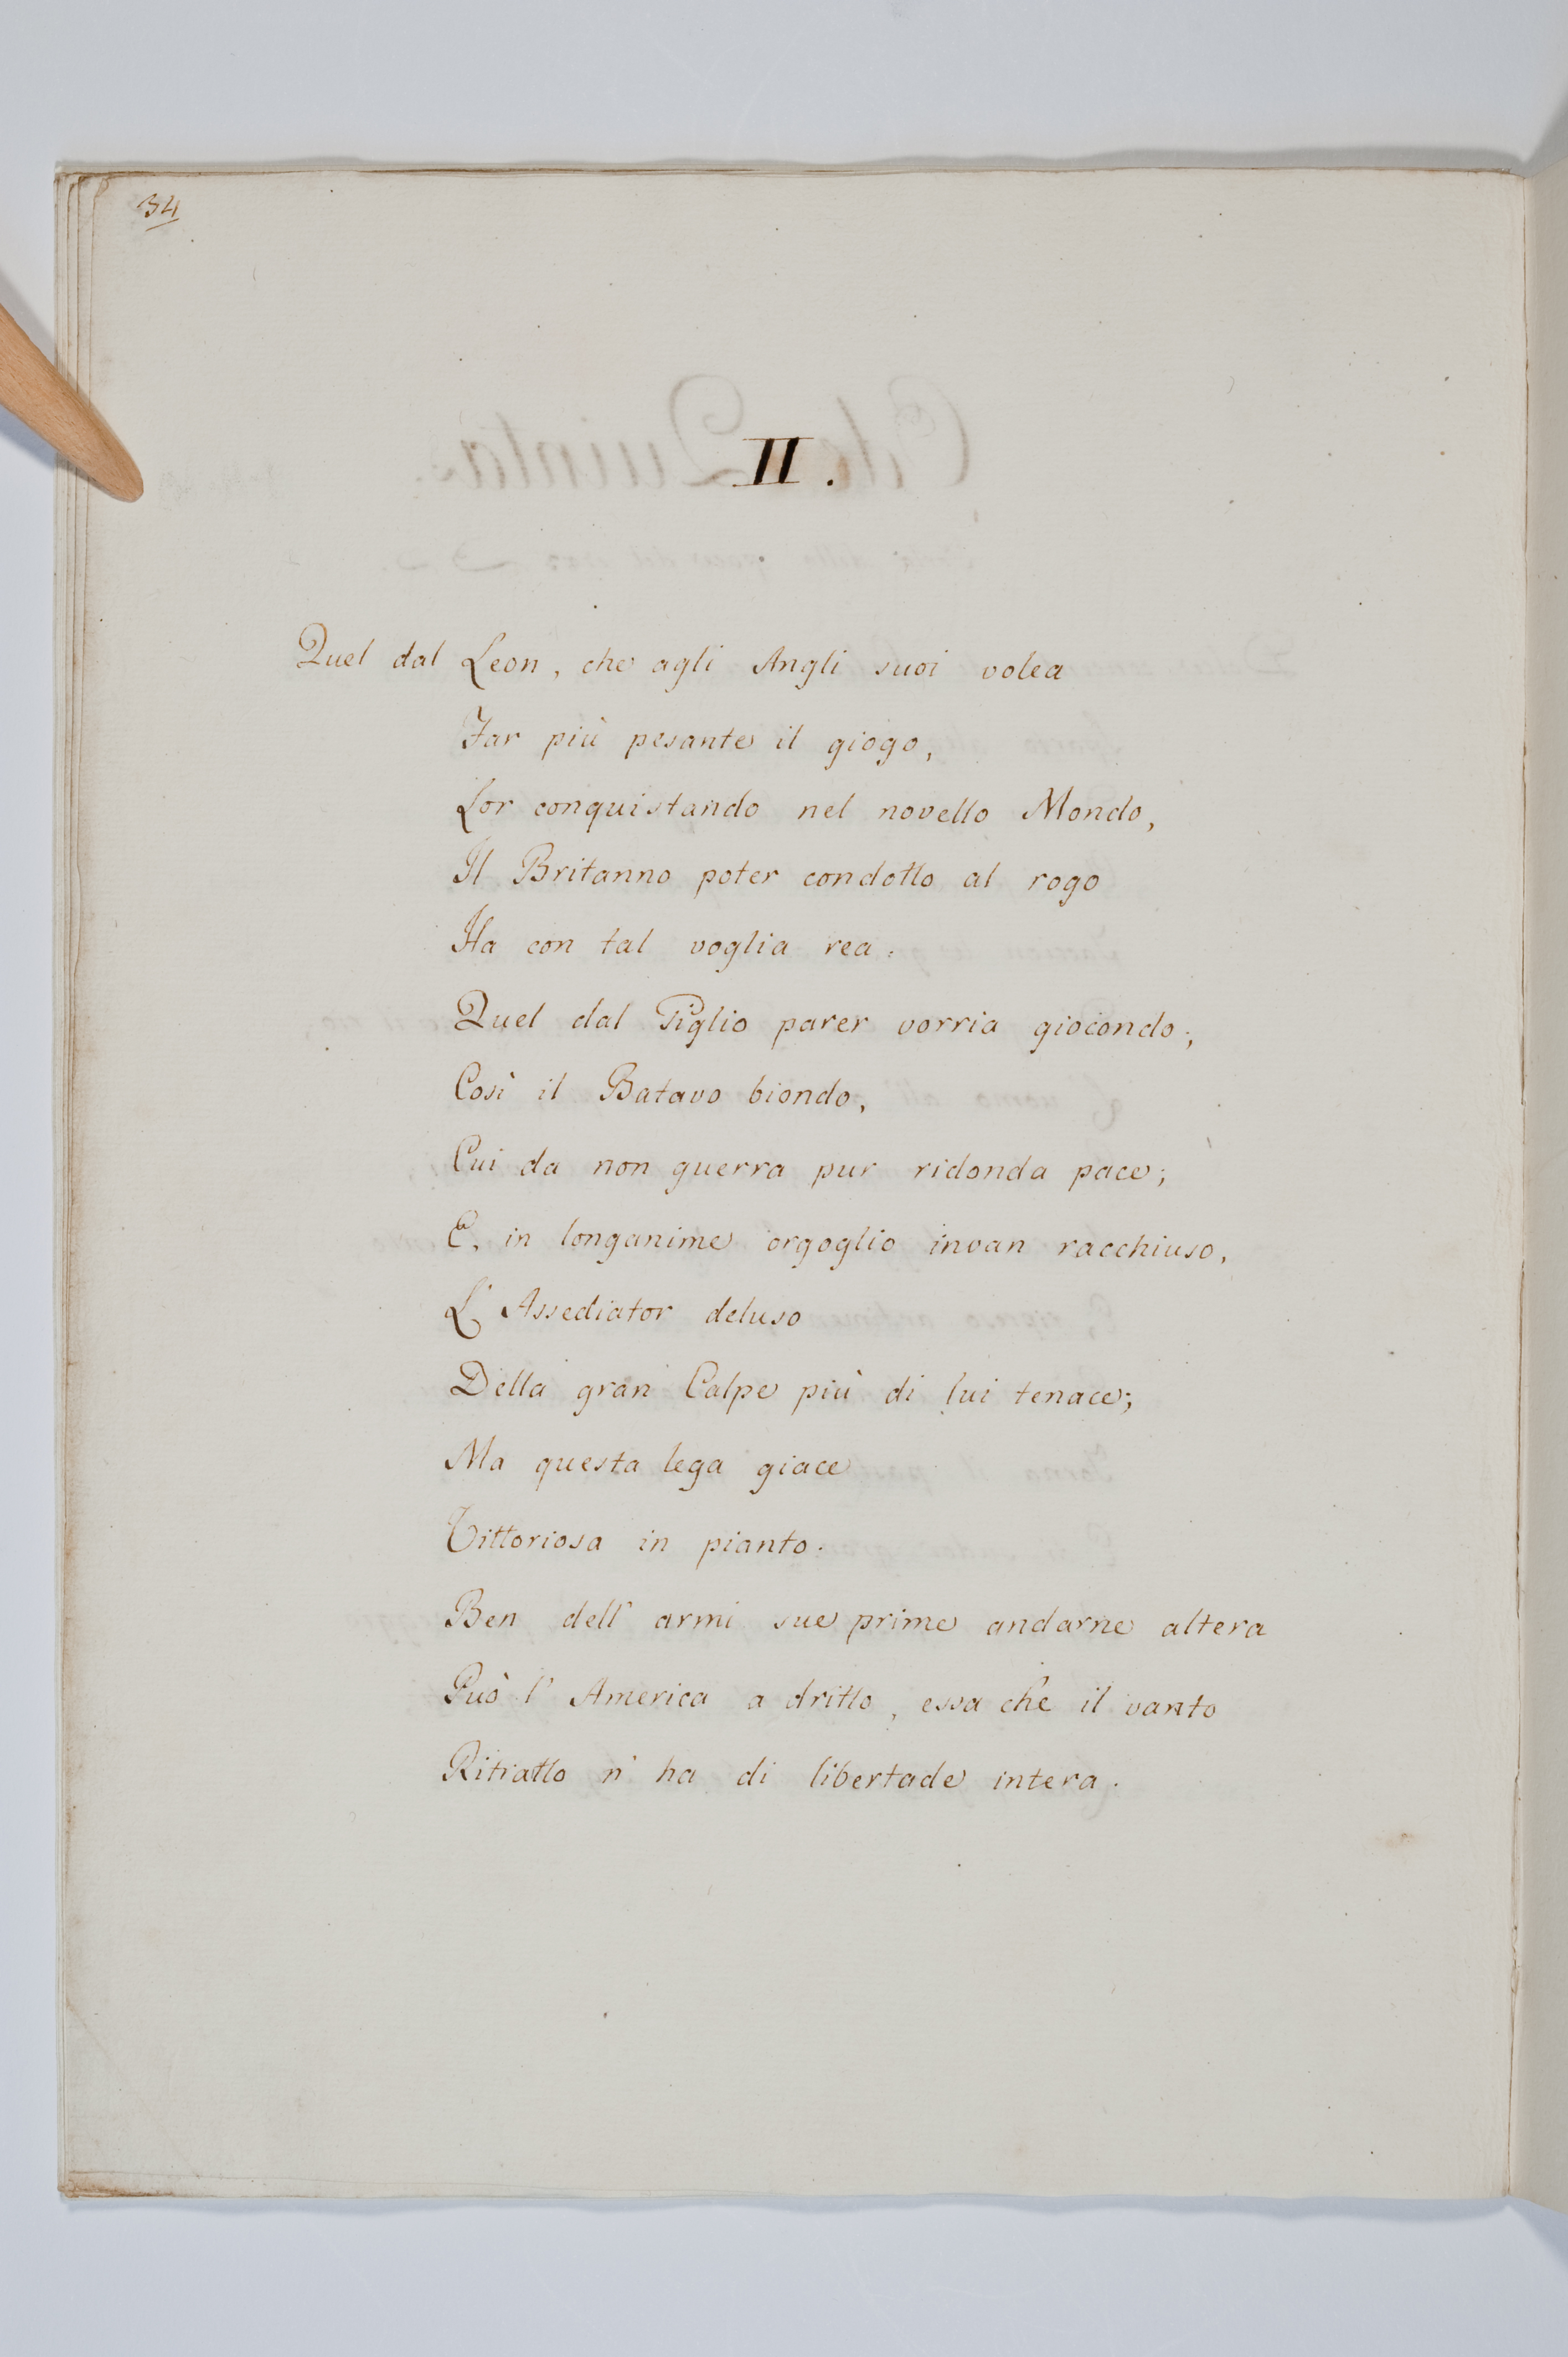 34
II.
Quel dal Leon, che agli Angli suoi volea
Far più pesante il giogo,
Lor conquistando nel novello Mondo,
Il Britanno poter condotto al rogo
Ha con tal voglia rea:
Quel dal Giglio parer vorria giocondo;
Così il Batavo biondo,
Cui da non guerra pur ridonda pace;
E, in longanime orgoglio invan racchiuso,
L' Assediator deluso
Della gran Calpe più di lui tenace;
Ma questa lega giace
Vittoriosa in pianto.
Ben dell' armi sue prime andarne altera
Può l' America a dritto, essa che il vanto
Ritratto n' ha di libertade intera.